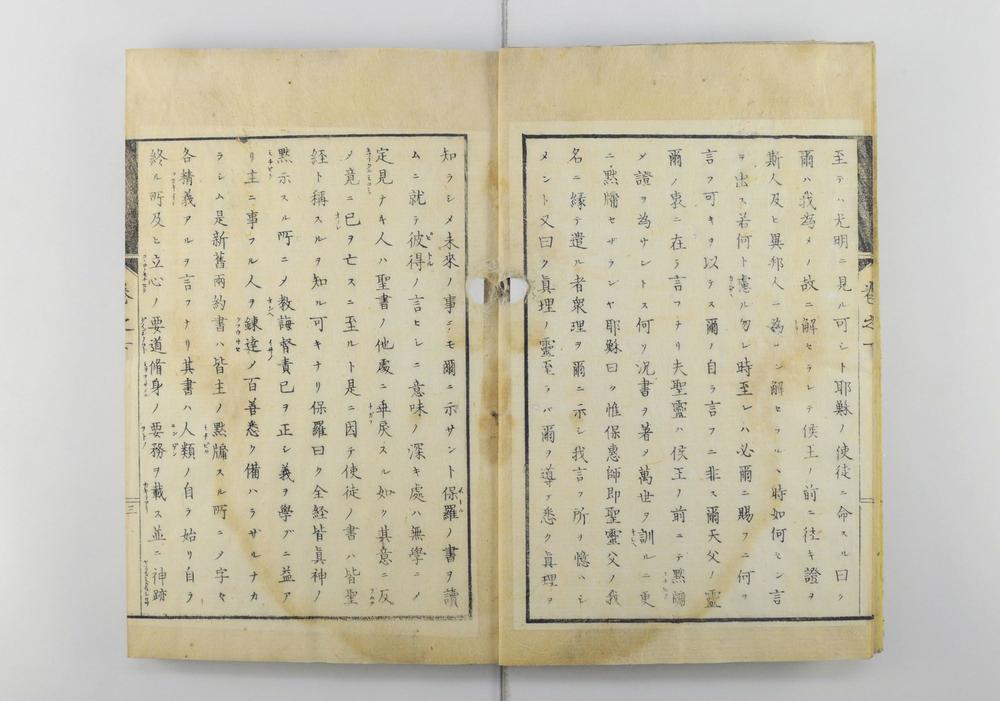 至テハ尤明ニ見ル可シト耶穌ノ使徒ニ命スル曰ク
爾ハ我為メノ故ニ解セラレテ侯王ノ前ニ往キ證ヲ
斯人及ヒ異邦人ニ為サン解セラルヽ時如何セン言
ヲ出ス若何ト慮ル勿レ時至レハ必爾ニ賜フニ何ヲ
言フ可キヲ以テス爾ノ自ラ言フニ非ス爾天父ノ靈
爾ノ衷ニ在ラ言フナリ夫聖靈ハ侯王ノ前ニテ黙牖
メ證ヲ為サントス何ソ况書ヲ著メ萬世ヲ訓ルニ更
ニ黙牖セザランヤ耶穌曰ク惟保惠師即聖靈父ノ我
名ニ縁テ遣ル者衆理ヲ爾ニ示シ我言フ所ヲ憶ハシ
メント又曰ク真理ノ靈至ラバ爾ヲ導テ悉ク真理ヲ
知ラシメ未來ノ事ニモ爾ニ示サント保羅ノ書ヲ讀
ムニ就テ彼得ノ言ヒシニ意味ノ深キ處ハ無學ニメ
定見ナキ人ハ聖書ノ他處ニ乖戻スル如ク其意ニ反
メ竟ニ已ヲ亡スニ至ルト是ニ因テ使徒ノ書ハ皆聖
経ト稱スルヲ知ル可キナリ保羅曰ク全経皆眞神ノ
黙示スル所ニメ教誨督責已ヲ正シ義ヲ學ブニ益ア
リ主ニ事フル人ヲ錬達ノ百善悉ク備ハラサルナカ
ラシム是新舊兩約書ハ皆主ノ黙牖スル所ニメ字々
各精義アルヲ言フナリ其書ハ人類ノ自ラ始リ自ラ
終ル所及ヒ立心ノ要道脩身ノ要務ヲ載ス並ニ神跡